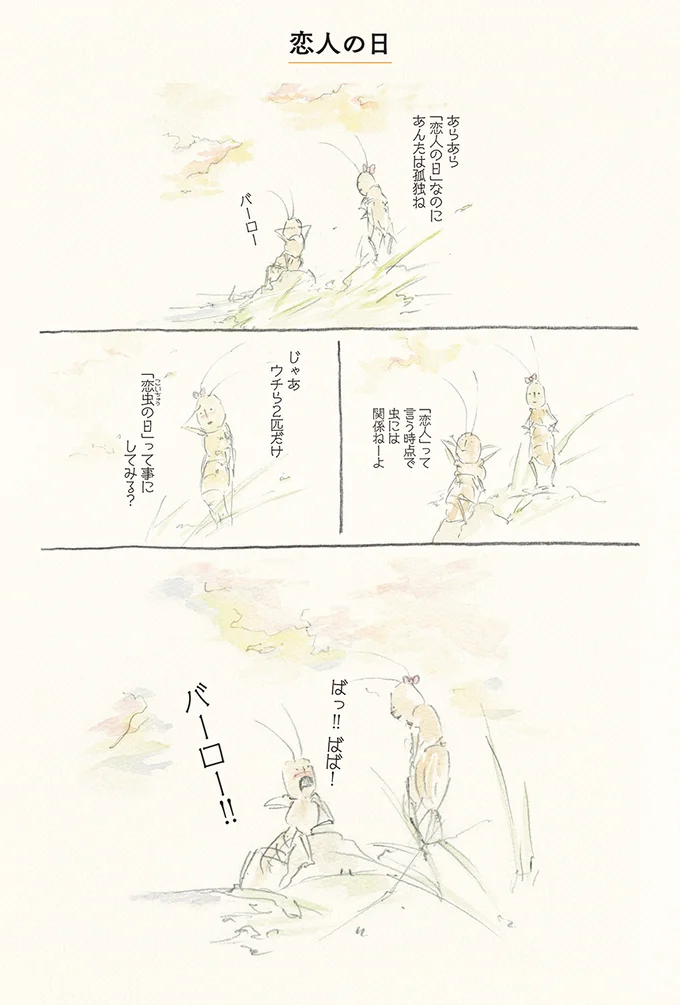 恋人の日
あらあら
「恋人の日」なのに
あんたは孤独ね
バーロー
「恋人」って
言う時点で
虫には
関係ねーよ
じゃあ
ウチら2匹だけ
「恋虫の日」って事に
こいちゅう
してみる？
ばっ!! ばば！
バーロー!!